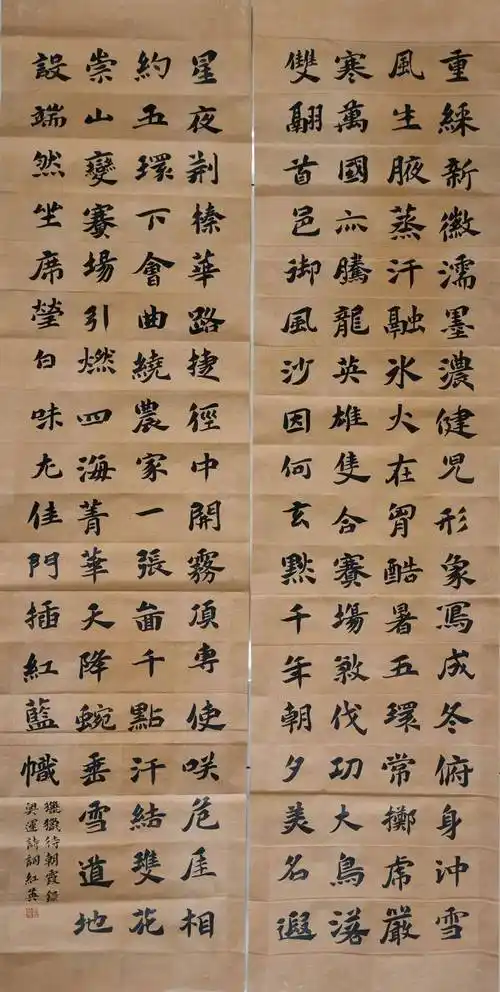 重綵新徽濡墨濃健児形象寫成冬俯身沖雪
風生腋蒸汗融氷火在胷酷暑五環常擲虎嚴
寒萬國亦騰龍英雄隻合賽場伐功大鳥落
雙翮首邑御風沙因何玄默千年朝夕美名遐
星夜荆榛華路捷徑中開霧頂専使咲危厓相
約五環下會曲繞農家一張面千點汗結雙花
崇山變賽場引燃四海菁華天降蜿垂雪道地
設端然坐席瑩白味尤佳門插紅藍幟
獵獵待朝霞錄
梁運詩詞紅英